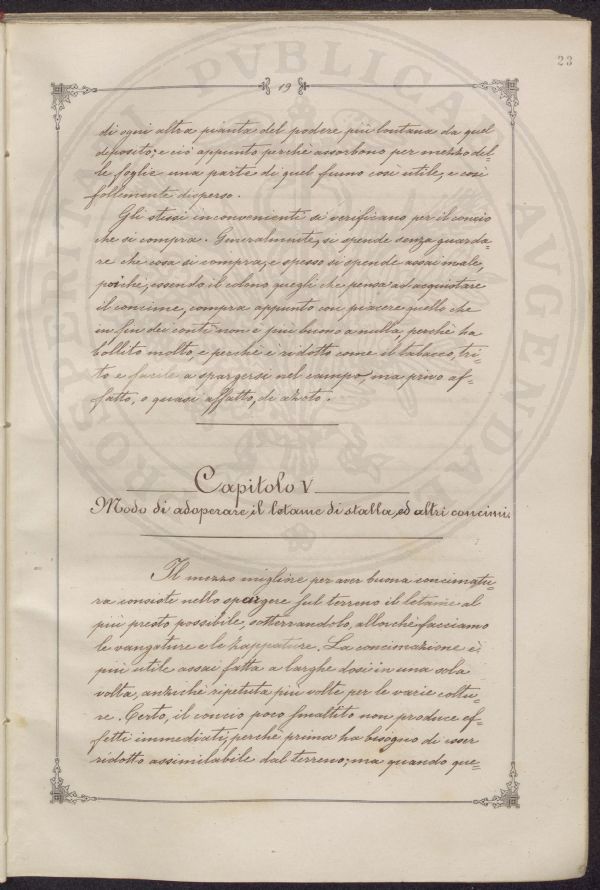 23
19
di ogni altra pianta del podere più lontana da quel
deposito; e ciò appunto perchè assorbono per mezzo del-
le foglie una parte di quel fiumo così utile, e così
follemente disperso.
Gli stessi inconvenienti si verificano per il concio
che si compra. Generalmente, si spende senza guarda
re che cosa si compra; e spesso si spende assai male,
poichè, essendo il colono quegli che pensa ad acquistare
il concime, compra appunto con piacere quello che
in fin dei conti non è più buono a nulla, perchè ha
bollito molto, e perchè è ridotto come il tabacco, tri-
to e facile a spargersi nel campo, ma privo af-
fatto, o quasi affatto, di azoto.
Capitolo V
Modo di adoperare il letame di stalla, ed altri concimi.
Il mezzo migliore per aver buona concimatu-
ra consiste nello spargere sul terreno il letame al
più presto possibile, sotterrandolo, allorchè facciamo
le vangature e le zappature. La concimazione è
più utile assai fatta a larghe dosi in una sola
volta, anzichè ripetuta più volte per le varie coltu-
re. Certo, il concio poco smaltito non produce ef-
fetti immediati, perchè prima ha bisogno di esser
ridotto assimilabile dal terreno; ma quando que-
PROSPERITATI PVBLICAE AVGENDAE